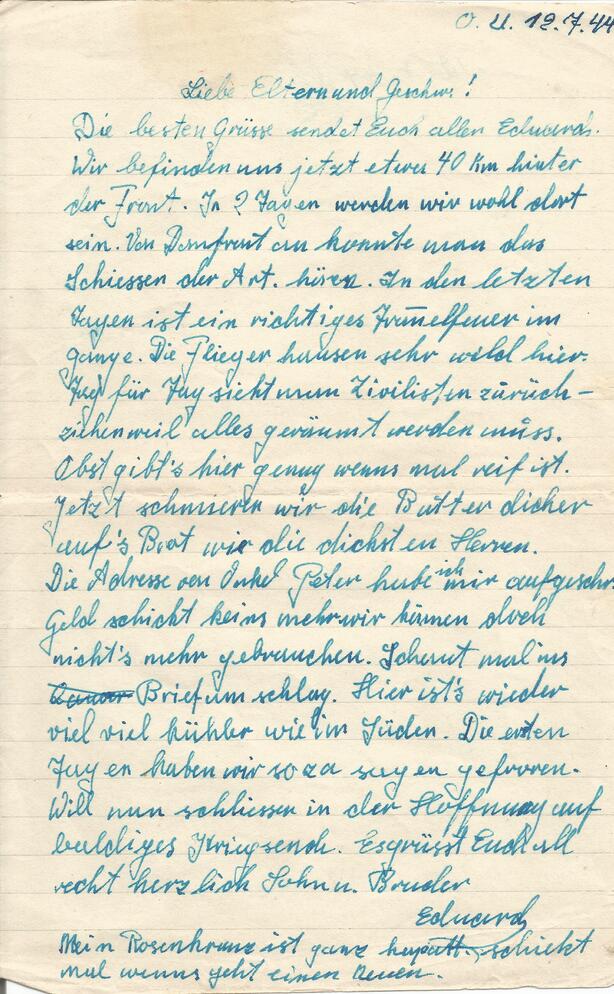 O.U. 12.7.44
Liebe Eltern und Geschws!
Die besten Grüsse sendet Euch allen Eduard.
Wir befinden uns jetzt etwa 40 Km hinter
der Front. In 2 Tagen werden wir wohl dort
sein. Von Domfront an konnte man das
Schiessen der Art. hören. In den letzten
Tagen ist ein richtiges Trom̄elfeuer im
gange. Die Flieger hausen sehr wild hier.
Tag für Tag sieht man Zivilisten zurück-
ziehen weil alles geräumt werden muss.
Obst gibt's hier genug wenns mal reif ist.
Jetzt schmieren wir die Butter dicker
auf's Brot wie die dicksten Herren.
Die Adresse von Onkel Peter habe ich mir aufgeschr
Geld schickt keins mehr wir können doch
nicht's mehr gebrauchen. Schaut mal ins
Briefumschlag. Hier ist's wieder
viel viel kühler wie im Süden. Die ersten
Tagen haben wir so za sagen gefroren.
Will nun schliessen in der Hoffnung auf
baldiges Kriegsend. Es grüsst Euch all
recht herzlich Sohn u. Bruder
Eduard
Mein Rosenkranz ist ganz kaputt, schickt
mal wenns geht einen neuen.